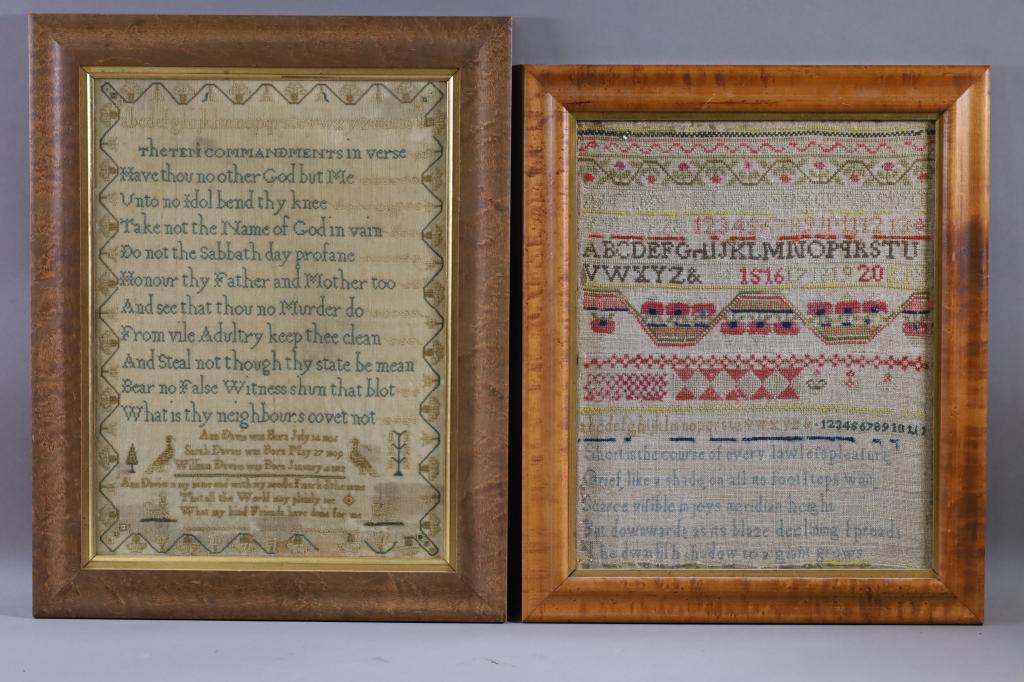 abcdefghijklmnopqrstuvwxyz
The TEN COMMANDMENTS in verse
Have thou no other God but Me
Unto no Idol bend thy knee
Take not the Name of God in vain
Do not the Sabbath day profane
Honour thy Father and Mother too
And see that thou no Murder do
From vile Adultry keep thee clean
And Steal not though thy state be mean
Bear no False Witness shun that blot
What is thy neighbours covet not
Ann Davies was Born July
Sarah Davies was Born May 27 1809
William Davies was Born January
Ann Davies is my name and with my needle I mark'd the same
That all the World may plainly see
What my kind Friends have done for me
12345
ABCDEFGHIJKLMNOPQRSTU
VWXYZ& 1516171819 20
abcdefghijklmnopqrstuvwxyz& 1234567891011
Short is the course of every lawless pleasure
Grief like a shade on all its footsteps wait
Scarce visible in joys meridian height
But downwards as its blaze declining spreads
The dwarfish shadow to a giant grows